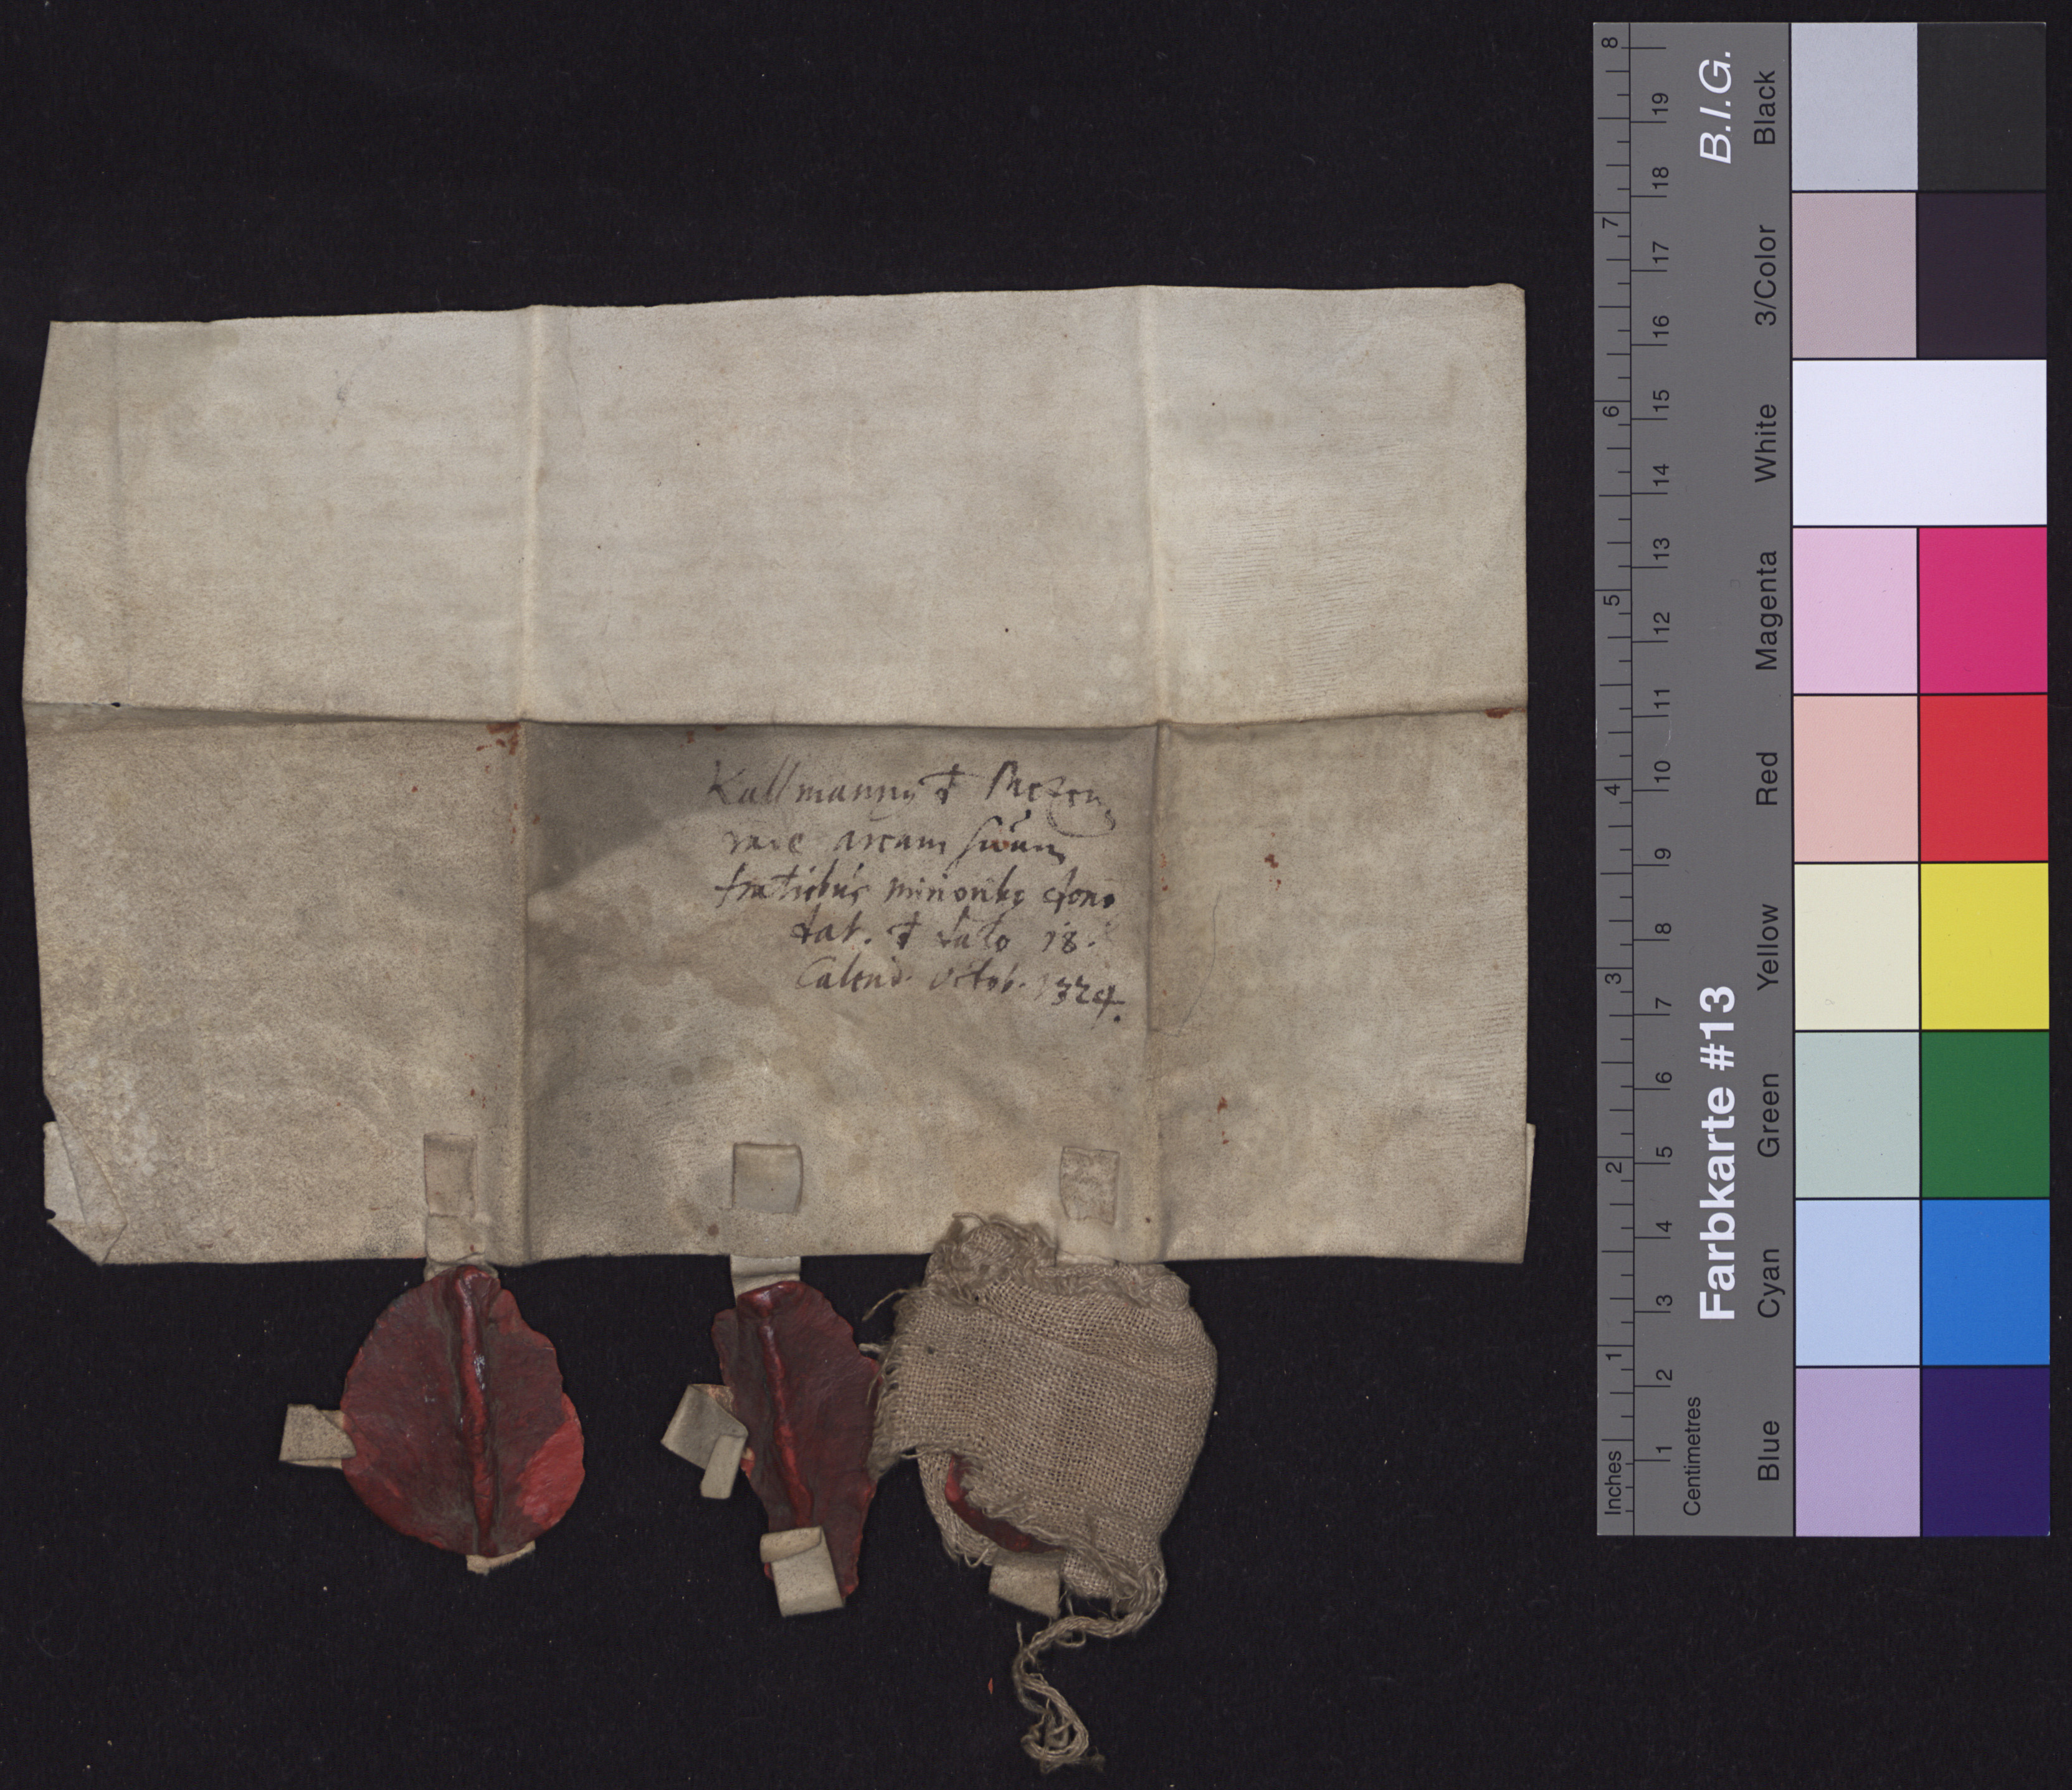 Kallmanny d
arcam suam
fratribus minoribs dono
dat. d dato 18.
Calend. Octob. 1324.
B.I.G.
Farbkarte #13
Black
3/Color
White
Magenta
Red
Yellow
Green
Cyan
Blue
Inches
1 2 3 4 5 6 7 8
Centimetres
1 2 3 4 5 6 7 8 9 10 11 12 13 14 15 16 17 18 19